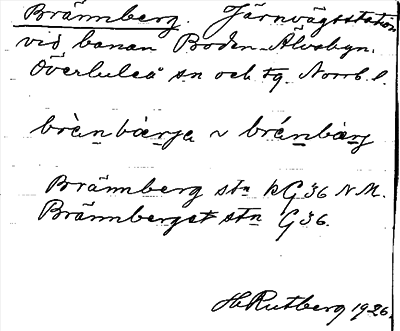 Brännberg. Järnvägsstation
vid banan Boden-Älvsbyn.
Överluleå sn och tg. Norrb. l.
brànbærja ~ bránbærj
Brännberg stn kG36 NM.
Brännberget stn G36.
H Rutberg 1926.